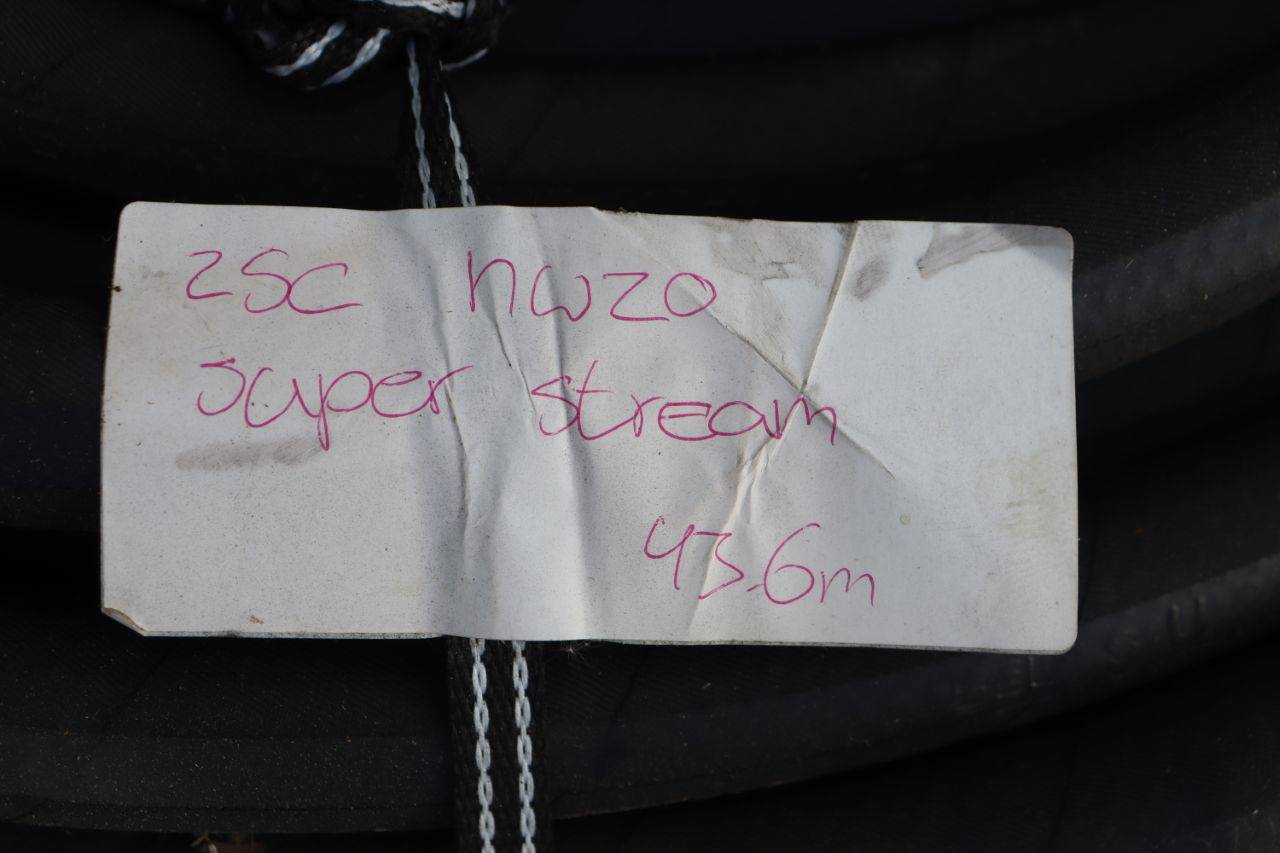 2SC nw20
super stream
43.6m